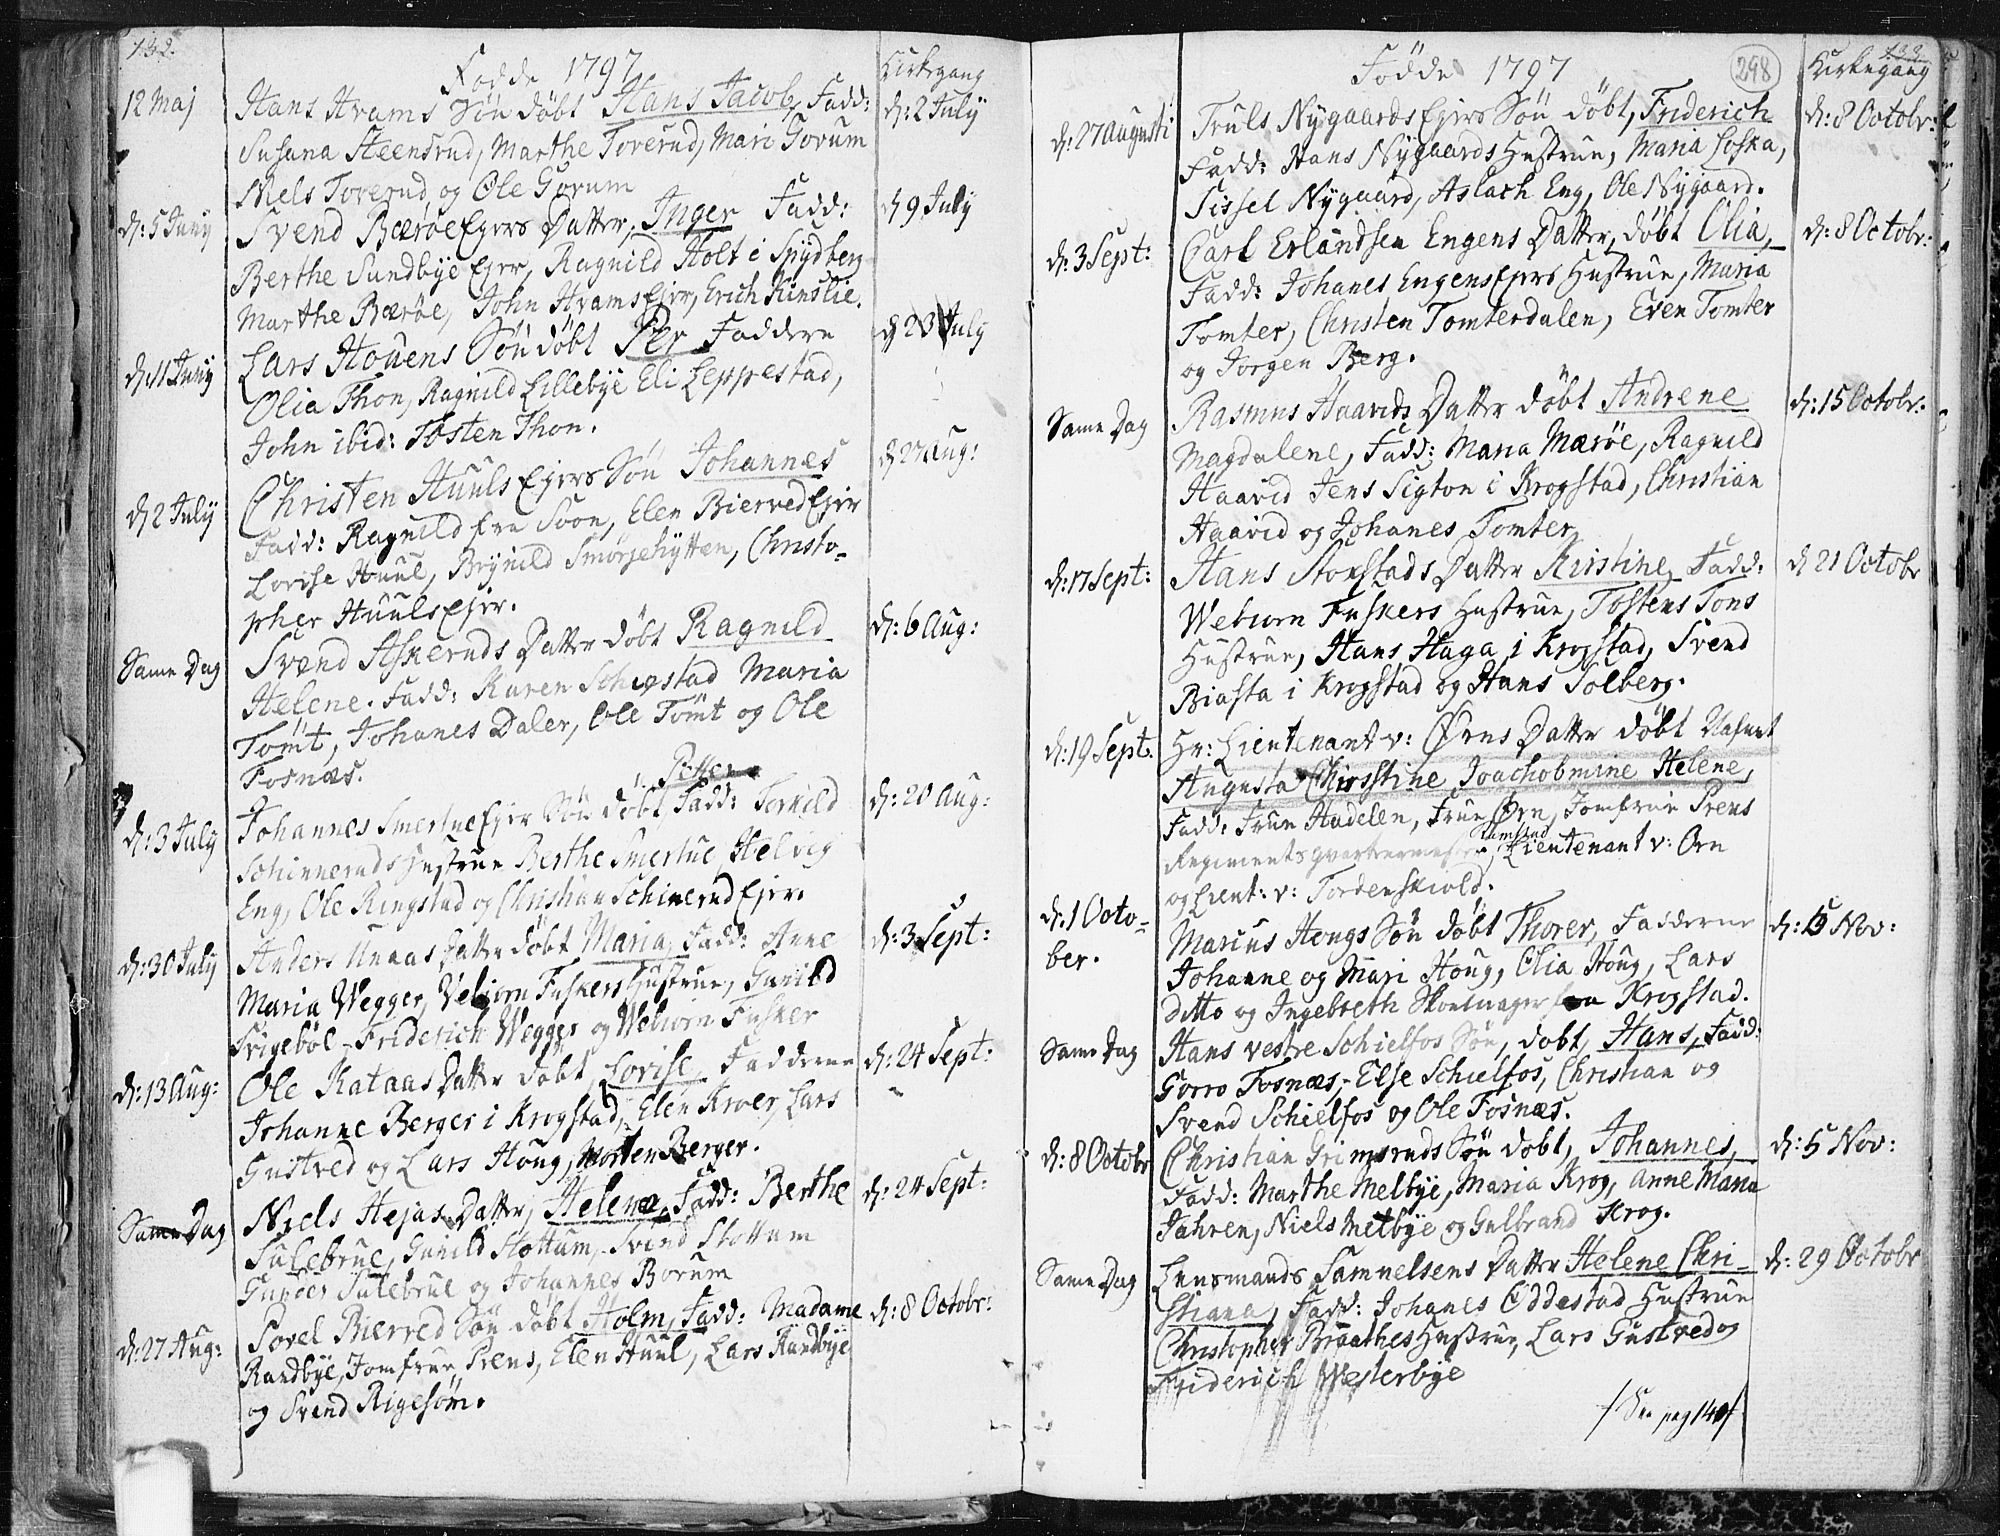 132.
Fødde 1797
Kirkegang
12 Maj
Hans Hvams Søn døbt Hans Jacob, Fadd:
d: 2 July
Susana Steensrud, Marthe Toverud, Mari Gorum
Niels Toverud, og Ole Gorum
d: 5 Juny
Svend Bærøe Ejers Datter, Inger Fadd:
d 9 July
Berthe Sundbye Ejer, Ragnild Holt i Spydberg
Marthe Bærøe, John Hvams Ejer, Erich Kinslie.
d: 11 Juny
Lars Houens Søn døbt Per Faddere
d 23 July
Olia Thon, Ragnild Lillebye Eli Leppestad,
John ibid: Tosten Thon.
d 2 July
Christen Huuls Ejers Søn Johannes
d 27 Aug:
Fadd: Ragnild fra Soon, Elen Bierved Ejer
Lovise Huul, Brynild Smørjehytten, Christo-
pher Huuls Ejer.
Same Dag
Svend Askeruds Datter døbt Ragnild
d: 6 Aug:
Helene. Fadd: Karen Schiestad Maria
Tomt, Johanes Daler, Ole Tomt og Ole
Fosnæs.
Petter
d: 3 July
Johannes Smertue Ejer Søn døbt Fadd: Torkild
d: 20 Aug:
Schinneruds Hustrue Berthe Smertue, Helvig
Eng, Ole Ringstad og Christian Schinerud Ejer.
d: 30 July
Anders Unaas Datter døbt Maria, Fadd: Anne
d: 3 Sept:
Maria Wegger, Vebiorn Fuskers Hustrue, Gunild
Svigebøl - Friderich Wegger og Webiorn Fusker
d: 13 Aug:
Ole Kataas Datter døbt, Lovise, Fadderne
d: 24 Sept:
Johanne Berger i Krogstad, Elen Kroer, Lars
Gustved og Lars Houg, Morten Berger.
Same Dag
Niels Hejas Datter, Helene, Fadd: Berthe
d: 24 Sept:
Sulebrue, Gunild Stottum, Svend Stottum
Gunder Sulebrue og Johannes Borum
d: 27 Aug:
Povel Bierved Søn døbt Holm, Fadd: Madame
d: 8 Octobr:
Randbye, Jomfrue Prens, Elen Huul, Lars Randbye
og Svend Rigesøm.
133
298
Fødde 1797
Kirkegang
d: 27 Augusti
Truls Nygaards Ejers Søn døbt, Friderich
d: 8 Octobr:
Fadd: Hans Nygaards Hustrue, Maria Loska,
Sissel Nygaard, Aslach Eng, Ole Nygaard.
d: 3 Sept:
Carl Erlandsen Engens Datter, døbt Olia,
d: 8 Octobr:
Fadd: Johanes Engens Ejers Hustrue, Maria
Tomter, Christen Tomterdalen, Even Tomter
og Jorgen Berg.
Same Dag
Rasmus Haavids Datter døbt Andrene
d: 15 Octobr:
Magdalene, Fadd: Maria Mærøe, Ragnild
Haavid Jens Sigton i Krogstad, Christian
Haavid og Johanes Tomter
d: 17 Sept:
Hans Storstads Datter Kirstine, Fadd:
d 21 Octobr
Webiorn Fuskers Hustrue, Tostens Tons
Hustrue, Hans Haga i Krogstad, Svend
Biasta i Krogstad og Hans Solberg.
d: 19 Sept.
Hr: Lieutenant v: Ørns Datter døbt
Augusta Christine Joachobmine Helene,
Fadd: Frue Hudelen, Frue Ørn, Jomfrue Prens
Ramstad
Regimentsqvartermester, Lieutenant v: Orn
og Lieut: v: Tordenskiold.
d: 1 Octo-
ber.
Marcus Hougs Søn døbt Thorer, Fadderne
d: 5 Nov:
Johanne og Mari Houg, Olia Houg, Lars
ditto og Ingebreth Skoemager fra Krogstad.
Same Dag
Hans vestre Schielfos Søn, døbt, Hans, Fadd:
Gorro Fosnæs, Else Schielfos, Christian og
Svend Schielfos og Ole Fosnæs.
d: 8 Octobr
Christian Grimsruds Søn døbt, Johannes,
d: 5 Nov:
Fadd: Marthe Melbye, Maria Krog, Anne Maria
Jahren, Niels Melbye og Gulbrand Krog.
Same Dag
Lensmands Samuelsens Datter Helene Chri-
d: 29 Octobr
stiana, Fadd: Johanes Oddestad Hustrue
Christopher Braathes Hustrue, Lars Gustved og
Friderich Westerbye
/: See pag 140 /